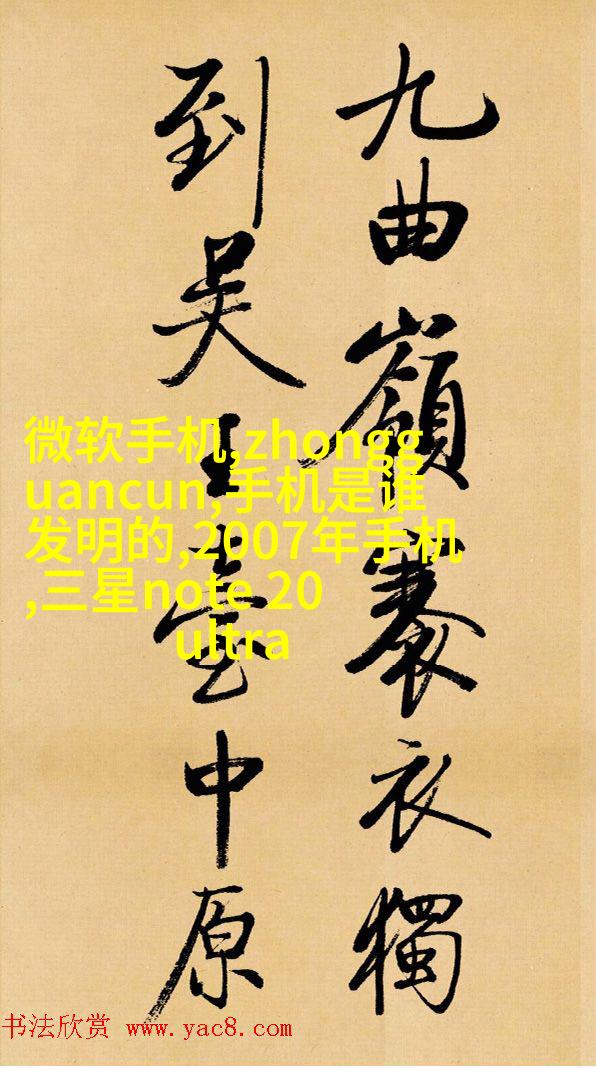 九曲嶺褰衣獨
到吴王臺中原
微软手机,zhongg
uancun,手机是谁
发明的,2007年手机
,三星note 20
ultra
书法欣赏 www.yac8.com